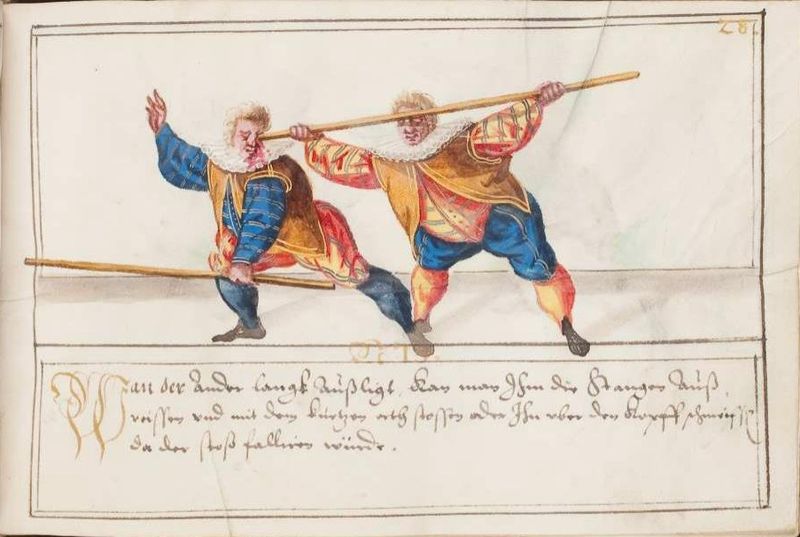 28
Wan der Ander langk Außligt, Kan man Ihm die Stangen Auß
reissen vnd mit dem kurtzen orth stossen oder Ihn vber den Kopff schmeissen
da der stoß falliren würde.